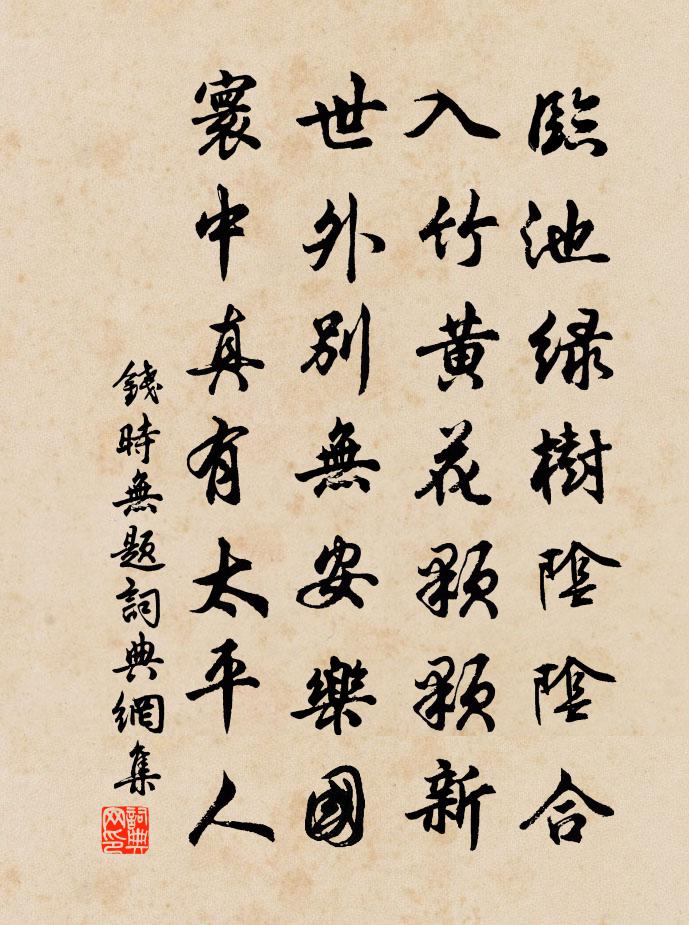 臨池緑樹陰陰合
入竹黄花顆顆新
世外別無安樂國
寰中真有太平人
錢時無題詞典網集
詞典网印